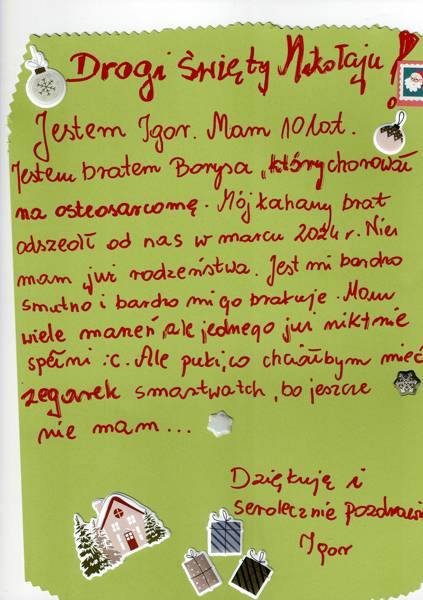 Drogi Święty Mikołaju!
Jestem Igor. Mam 10 lat.
Jestem bratem Borysa, który chorował
na osteosarcomę. Mój kahany brat
odszedł od nas w marcu 2024 r. Nie
mam już rodzeństwa. Jest mi bardzo
smutno i bardzo mi go brakuje. Mam
wiele mażeń, ale jednego już nikt nie
spełni :c. Ale puki co chciałbym mieć
zegarek smastwatch, bo jeszcze
nie mam...
Dziękuję i
serdecznie pozdrawiam
Igor